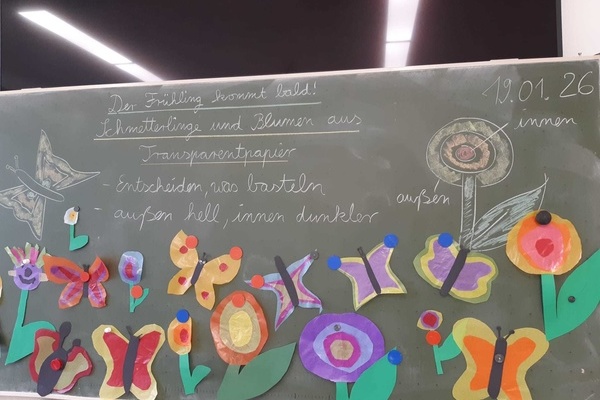 19.01.26
Der Frühling kommt bald!
Schmetterlinge und Blumen aus
Transparentpapier
- Entscheiden, was basteln
- außen hell, innen dunkler
innen
außen